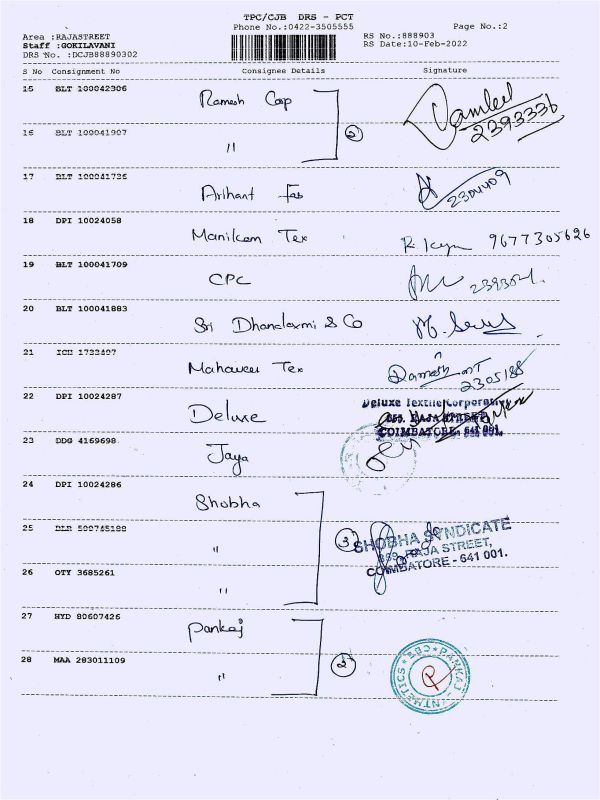 TPC/CJB DRS - PCT
Phone No.:0422-3505555
Page No.:2
Area :RAJASTREET
Staff :GOKILAVANI
DRS No. :DCJB88890302
RS No.:888903
RS Date:10-Feb-2022
S No Consignment No Consignee Details Signature
15 BLT 100042306 Ramesh Corp
2393336
16 BLT 100041907 " 2
17 BLT 100041736 Arihant Fab 2304409
18 DPI 10024058 Manikam Tex 9677305626
19 BLT 100041709 CPC
20 BLT 100041883 Sri Dhanalaxmi & Co
21 ICH 1733497 Mahaveer Tex 2305188
22 DPI 10024287 Deluxe
Deluxe Textile Corporation
RAJA STREET
COIMBATORE - 641 001.
23 DDG 4169698 Jaya
24 DPI 10024286 Shobha
25 DLR 500745188 " 3
SHOBHA SYNDICATE
359, RAJA STREET,
COIMBATORE - 641 001.
26 OTY 3685261 "
27 HYD 80607426 Pankaj
28 MAA 283011109 " 2
PANKAJ SYNTHETICS CBE